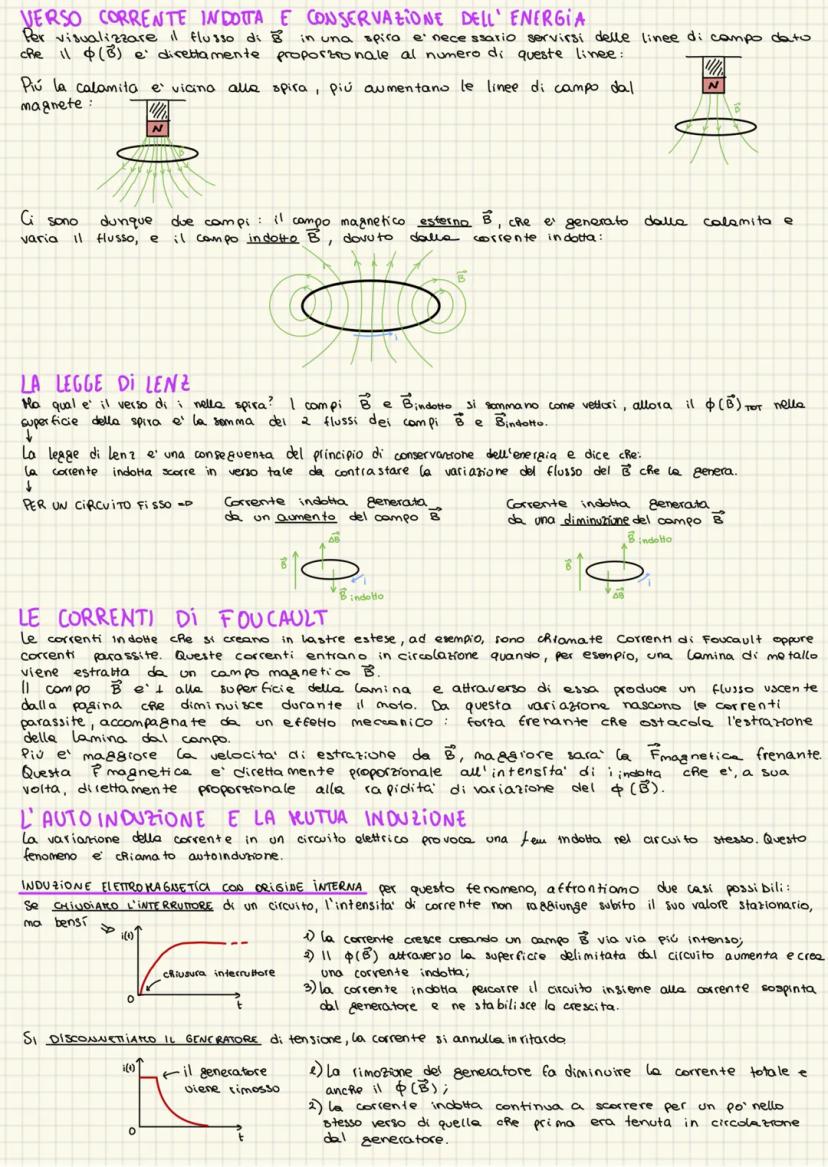 VERSO CORRENTE INDOTTA E CONSERVAZIONE DELL'ENERGIA
Per visualizzare il flusso di B⃗ in una spira e' necessario servirsi delle linee di campo dato
che il φ(B⃗) e' direttamente proporzionale al numero di queste linee:
Più la calamita e' vicina alla spira, più aumentano le linee di campo dal
magnete:
N
N
B⃗
Ci sono dunque due campi: il campo magnetico esterno B⃗, che e' generato dalla calamita e
varia il flusso, e il campo indotto B⃗, dovuto dalla corrente indotta:
B⃗
i
LA LEGGE Di LENZ
Ma qual e' il verso di i nella spira? I campi B⃗ e B⃗indotto si sommano come vettori, allora il φ(B⃗)TOT nella
superficie della spira e' la somma dei 2 flussi dei campi B⃗ e B⃗indotto.
↓
La legge di Lenz e' una conseguenza del principio di conservazione dell'energia e dice che:
la corrente indotta scorre in verso tale da contrastare la variazione del flusso del B⃗ che la genera.
↓
PER UN CIRCUITO FISSO => Corrente indotta generata Corrente indotta generata
da un aumento del campo B⃗ da una diminuzione del campo B⃗
B⃗ ΔB⃗ i B⃗ indotto
B⃗ B⃗ indotto i ΔB⃗
LE CORRENTI Di FOUCAULT
Le correnti indotte che si creano in lastre estese, ad esempio, sono chiamate Correnti di Foucault oppure
correnti parassite. Queste correnti entrano in circolazione quando, per esempio, una lamina di metallo
viene estratta da un campo magnetico B⃗.
Il campo B⃗ e' ⊥ alla superficie della lamina e attraverso di essa produce un flusso uscente
dalla pagina che diminuisce durante il moto. Da questa variazione nascono le correnti
parassite, accompagnate da un effetto meccanico: forza frenante che ostacola l'estrazione
della lamina dal campo.
Più e' maggiore la velocita' di estrazione da B⃗, maggiore sara' la F⃗magnetica frenante.
Questa F⃗ magnetica e' direttamente proporzionale all'intensita' di i indotta che e', a sua
volta, direttamente proporzionale alla rapidita' di variazione del φ(B⃗).
L'AUTOINDUZIONE E LA MUTUA INDUZIONE
La variazione della corrente in un circuito elettrico provoca una fem indotta nel circuito stesso. Questo
fenomeno e' chiamato autoinduzione.
INDUZIONE ELETTROMAGNETICA CON ORIGINE INTERNA per questo fenomeno, affrontiamo due casi possibili:
Se CHIUDIAMO L'INTERRUTTORE di un circuito, l'intensita' di corrente non raggiunge subito il suo valore stazionario,
ma bensì
i(t)
chiusura interruttore
0
t
1) la corrente cresce creando un campo B⃗ via via più intenso;
2) Il φ(B⃗) attraverso la superficie delimitata dal circuito aumenta e crea
una corrente indotta;
3) la corrente indotta percorre il circuito insieme alla corrente sospinta
dal generatore e ne stabilisce la crescita.
Si DISCONNETTIAMO IL GENERATORE di tensione, la corrente si annulla in ritardo
i(t)
il generatore
viene rimosso
0
t
1) La rimozione del generatore fa diminuire la corrente totale e
anche il φ(B⃗);
2) la corrente indotta continua a scorrere per un po' nello
stesso verso di quella che prima era tenuta in circolazione
dal generatore.